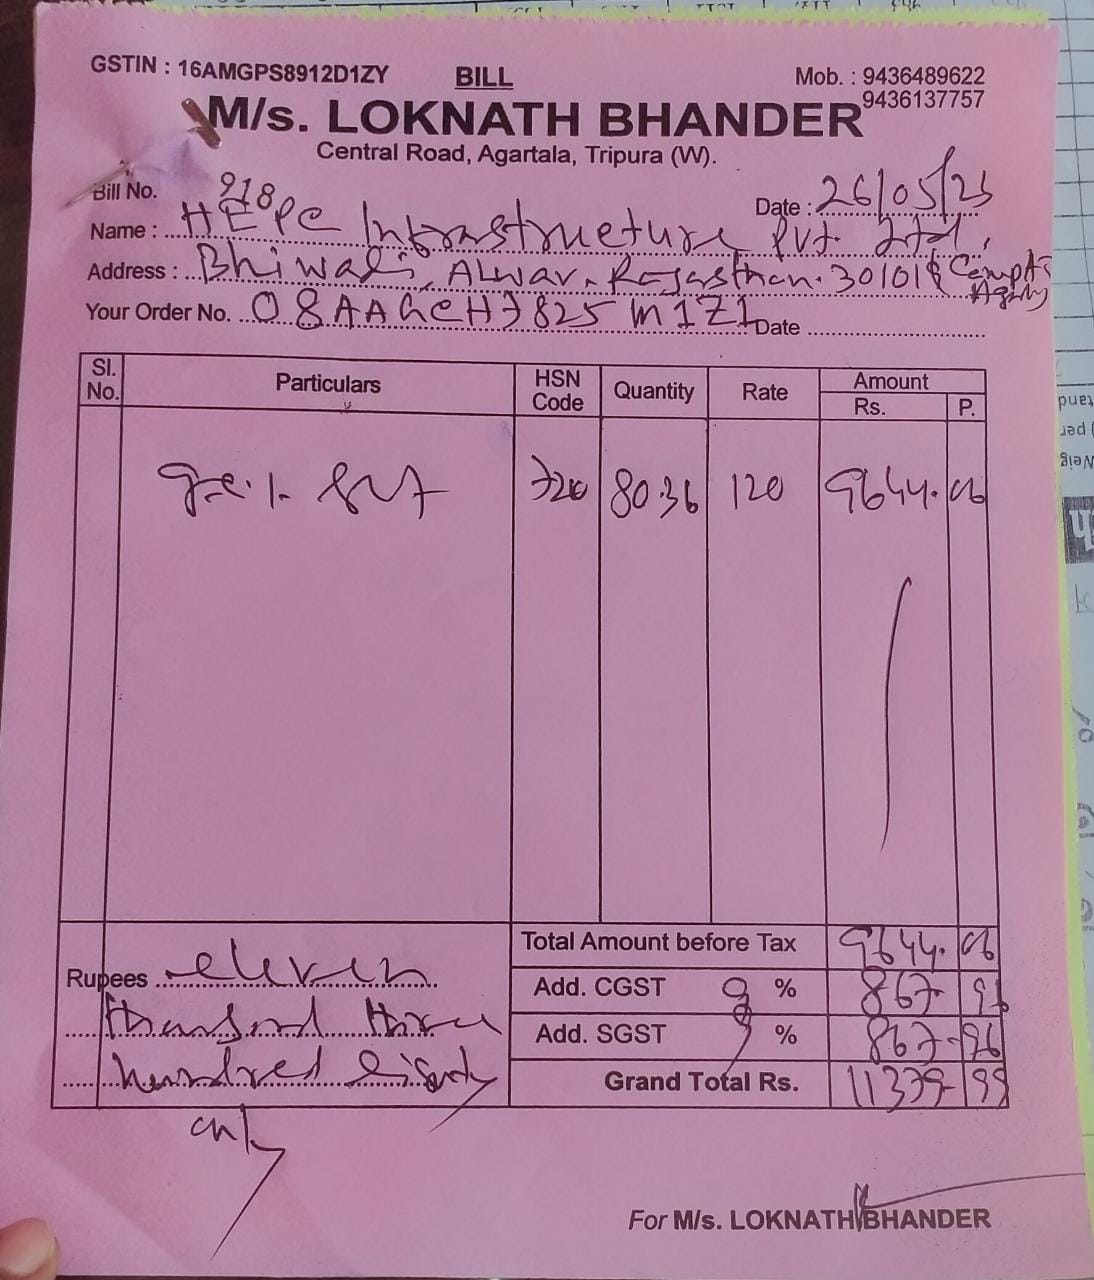 GSTIN : 16AMGPS8912D1ZY BILL Mob. : 9436489622
9436137757
M/s. LOKNATH BHANDER
Central Road, Agartala, Tripura (W).
Bill No. 918 Date : 26/05/25
Name : HEPC Infrastructure Pvt. Ltd.
Address : Bhiwadi, Alwar, Rajasthan. 301018 Camp At
Your Order No. 08AAGCH7825M1Z1 Date
Sl. No. Particulars HSN Code Quantity Rate Amount
Rs. P.
80.36 120 9644. 06
Total Amount before Tax 9644. 06
Rupees eleven
Add. CGST 9 % 867 96
thousand three
Add. SGST 9 % 867-96
hundred eighty
Grand Total Rs. 11379-99
only
For M/s. LOKNATH BHANDER